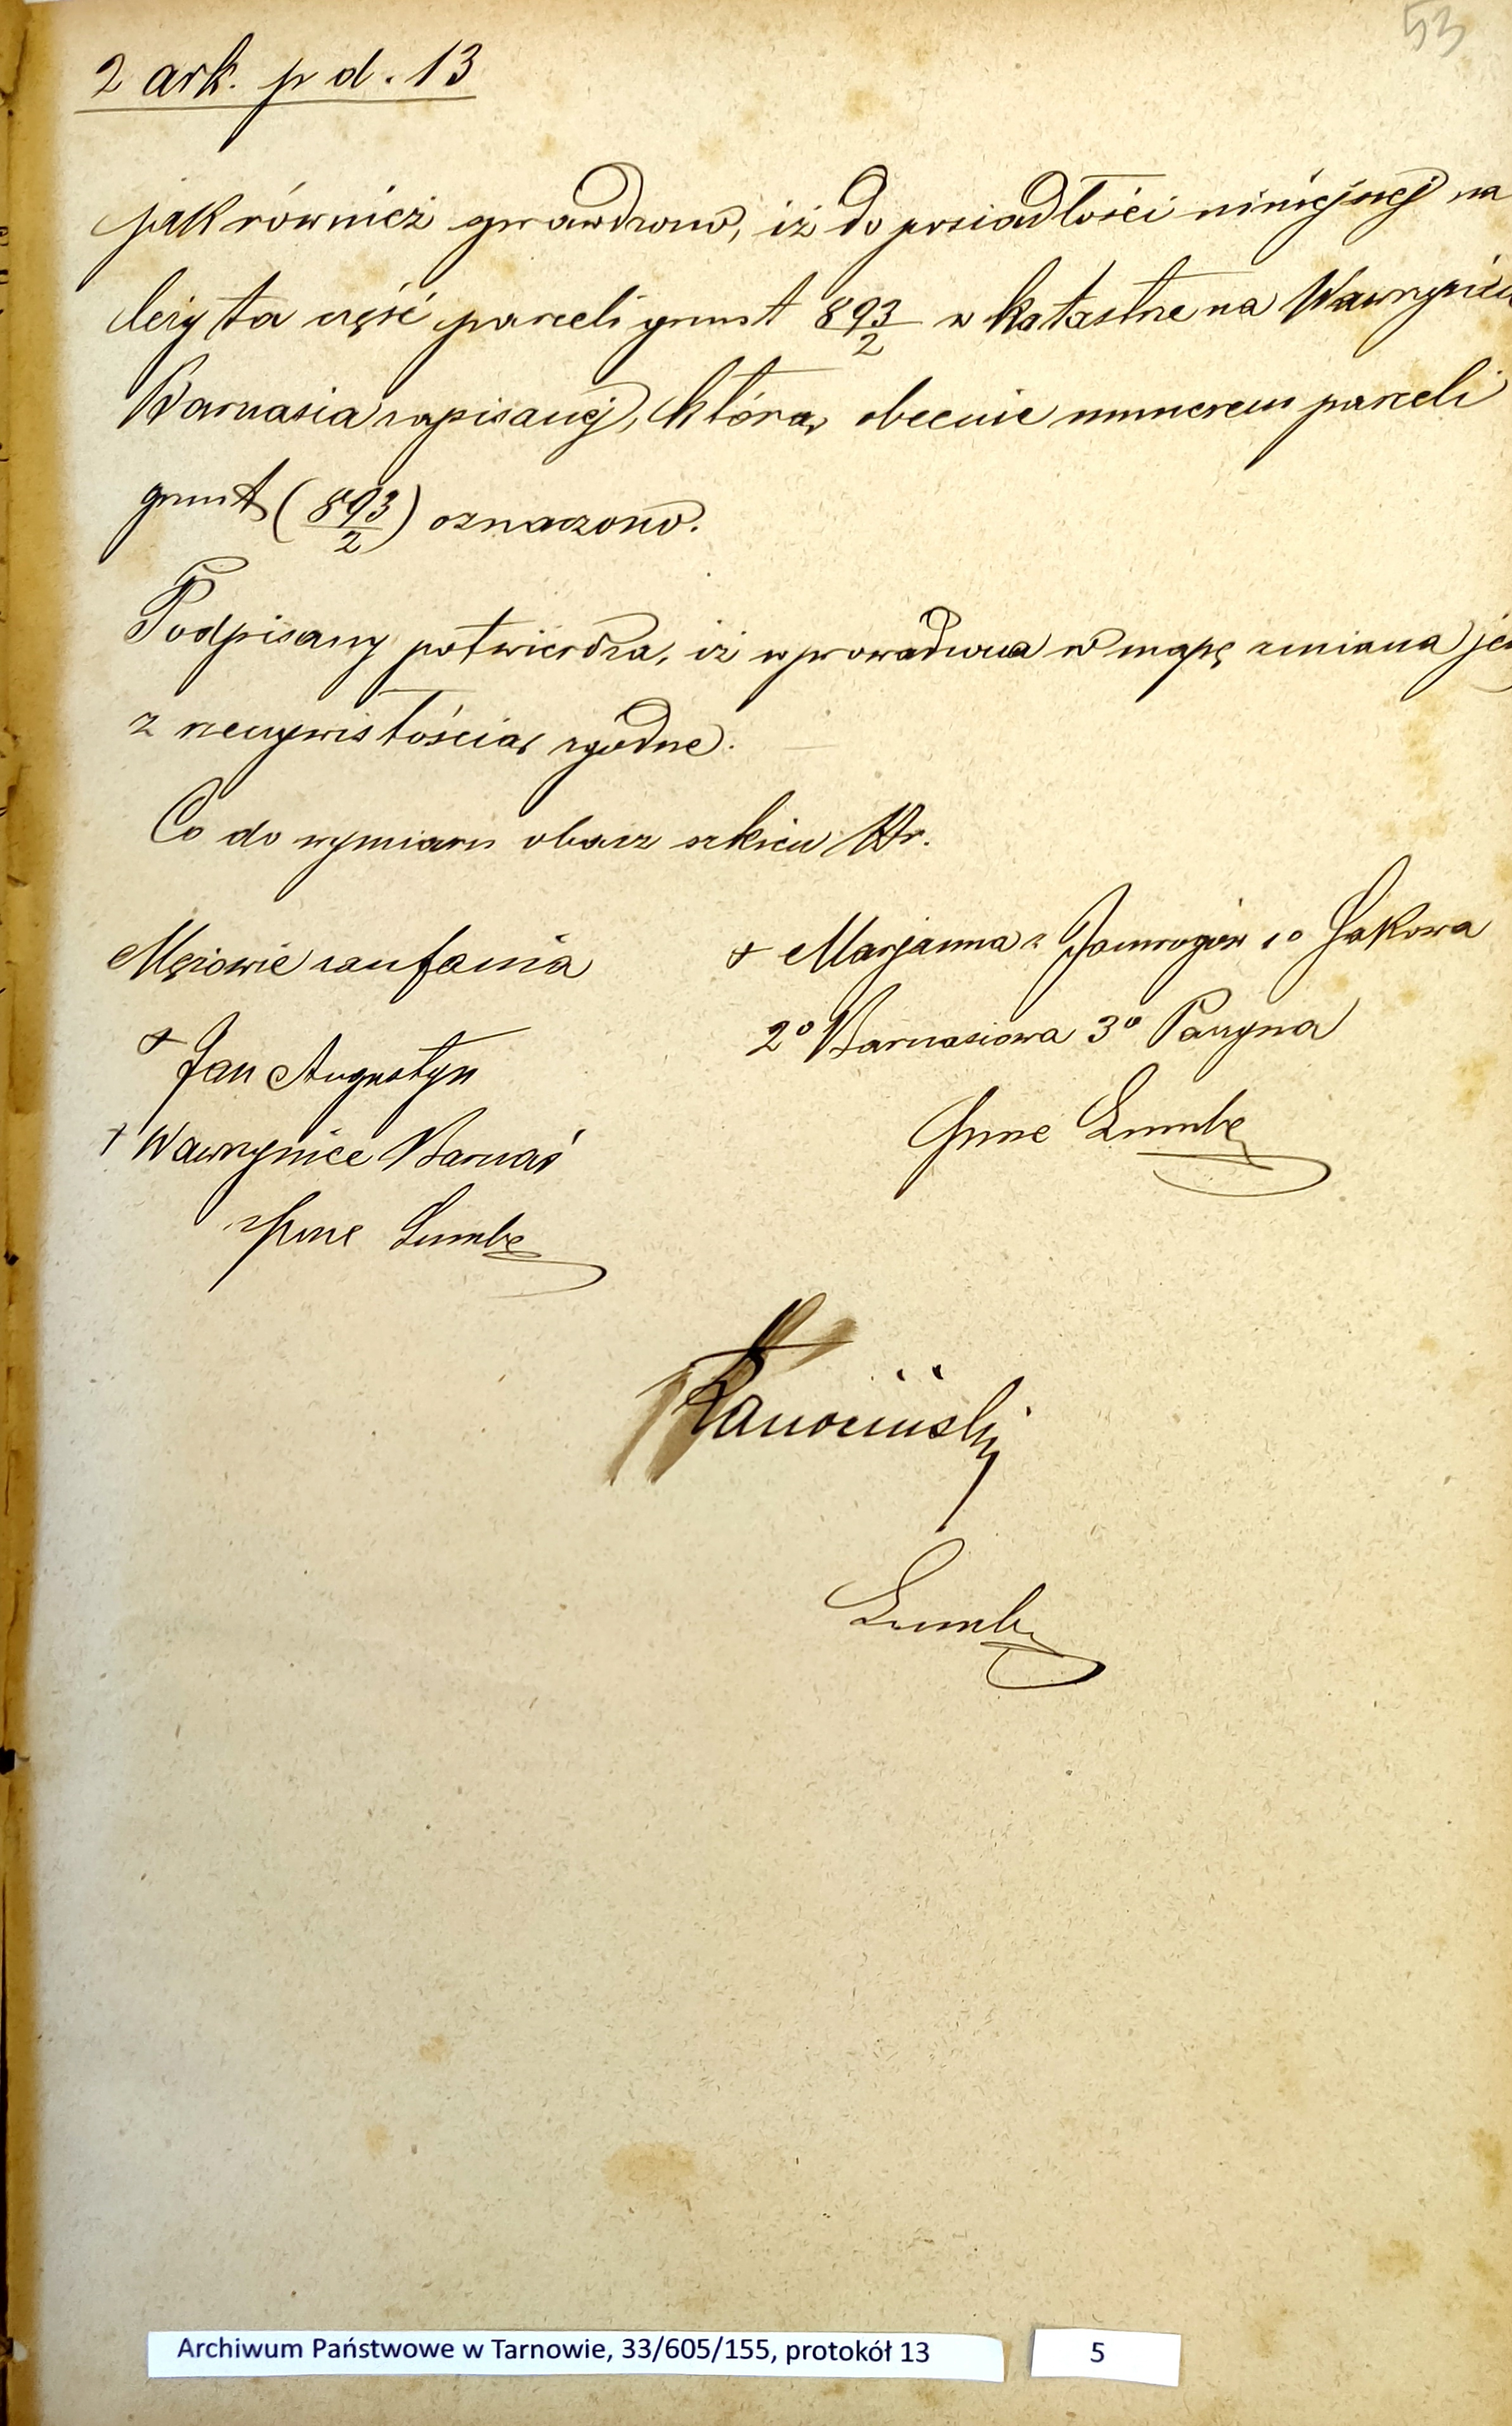 53
2 ark. p d. 13
jak również sprawdzono, iż do posiadłości niniejszej na
leży ta część parceli grunt 893/2 w katastrze na Wawrzyńca
Barnasia zapisanej, którą obecnie numerem parceli
grunt (893/2) oznaczono.
Podpisany potwierdza, iż wprowadzona w mapę zmiana jes
z rzeczywistością zgodne.
Co do wymiaru obacz szkicu Nr.
Mężowie zaufania
+ Jan Augustyn
+ Wawrzyniec Barnaś
+ Marjanna z Jamrogów 1o Żakowa
2o Barnasiowa 3o Paryna
Archiwum Państwowe w Tarnowie, 33/605/155, protokół 13
5